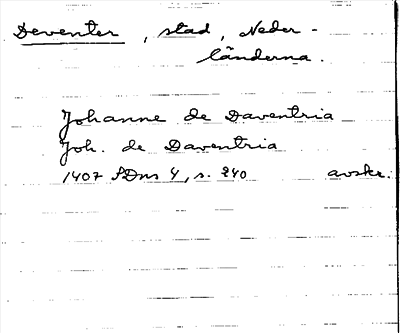 Deventer, stad, Neder-
länderna.
Johanne de Daventria
Joh. de Daventria
1407 SDns 4, s. 240 avskr.